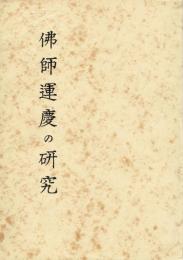 佛師運慶の研究